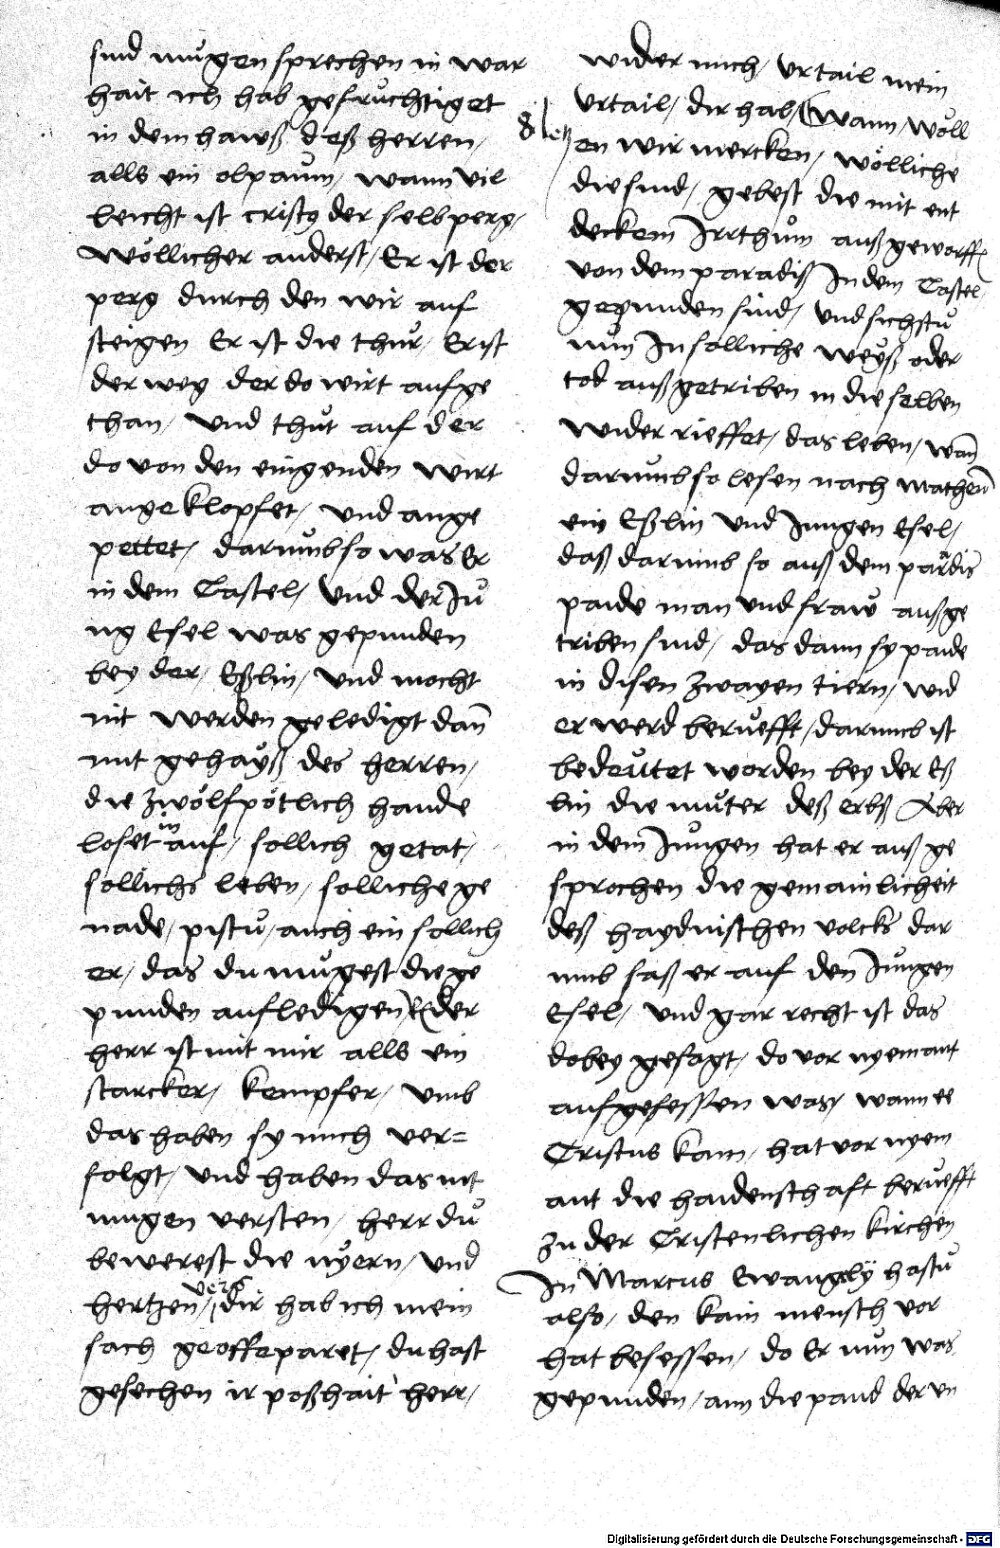 sind mugen sprechen in war
hait ich hab gefruchtiget
in dem hawß deß herren,
alls ein olpaům, wann vil
leicht ist cristꝯ der selb perg,
wöllicher anderst, Er ist der
perg durch den wir auf
steigen Er ist die thůr, Er ist
der weg der do wirt aufge
than, und thůt auf der
do von den eingenden wirt
angeklopfet, und ange
pettet, darumb so was Er
in dem Castel, und der Jů
ng Esel was gepunden
bey der, Eßlin, und mocht
nit werden geledigt dan̄
mit gehayß des herren,
die zwölfpötlich hande
loset in auf, sollich getat,
sollichs leben, solliche ge
nade, pistu, auch ein sollich
er, das du mugest die ge
punden aufledigen, der
herr ist mit mir alls ein
starcker, kempfer, umb
das haben sy mich ver=
folgt, und haben das nit
mugen versten, herr dů
bewerest die nyern, und
hertzen, vers dir hab ich mein
sach geoffeparet, du hast
gesechen ir poßhait herr,
wider mich, urtail mein
urtail, dir hab, Wann, wöll
en wir mercken, wölliche
die sind, gebest die mit ent
decktem Irrthům auß geworffen
von dem paradiß In dem Castel,
gepunden sind, und sichstu
nůn In solliche weyß oder
tod auß getriben in dieselben
wider rieffet, das leben, wan̄
darumb so lesen nach Matheum
ein Eßlin und Jungen Esel,
daß darumb so auß dem paradis
paide man und fraw außge
triben sind, das dann sy paide
in disen zwayen tiern, wid
er werd berůefft, darumb ist
bedeůtet worden bey der Eß
lin die můter deß erbß Aber
in dem Jungen hat er auß ge
sprochen die gemainlicheit
deß haydnischen volcks dar
umb saß er auf den Jungen
Esel, und gar recht ist das
dobey gesagt, do vor nyemant
aufgesessen was, wann ee
Cristus kam, hat vor nyem
ant die haidenschaft berůefft
zu der Cristenlichen kirchen
In Marcus Ewangely hastu
also, den kain mensch vor
hat besessen, do Er nun was
gepunden, ann die pand der un